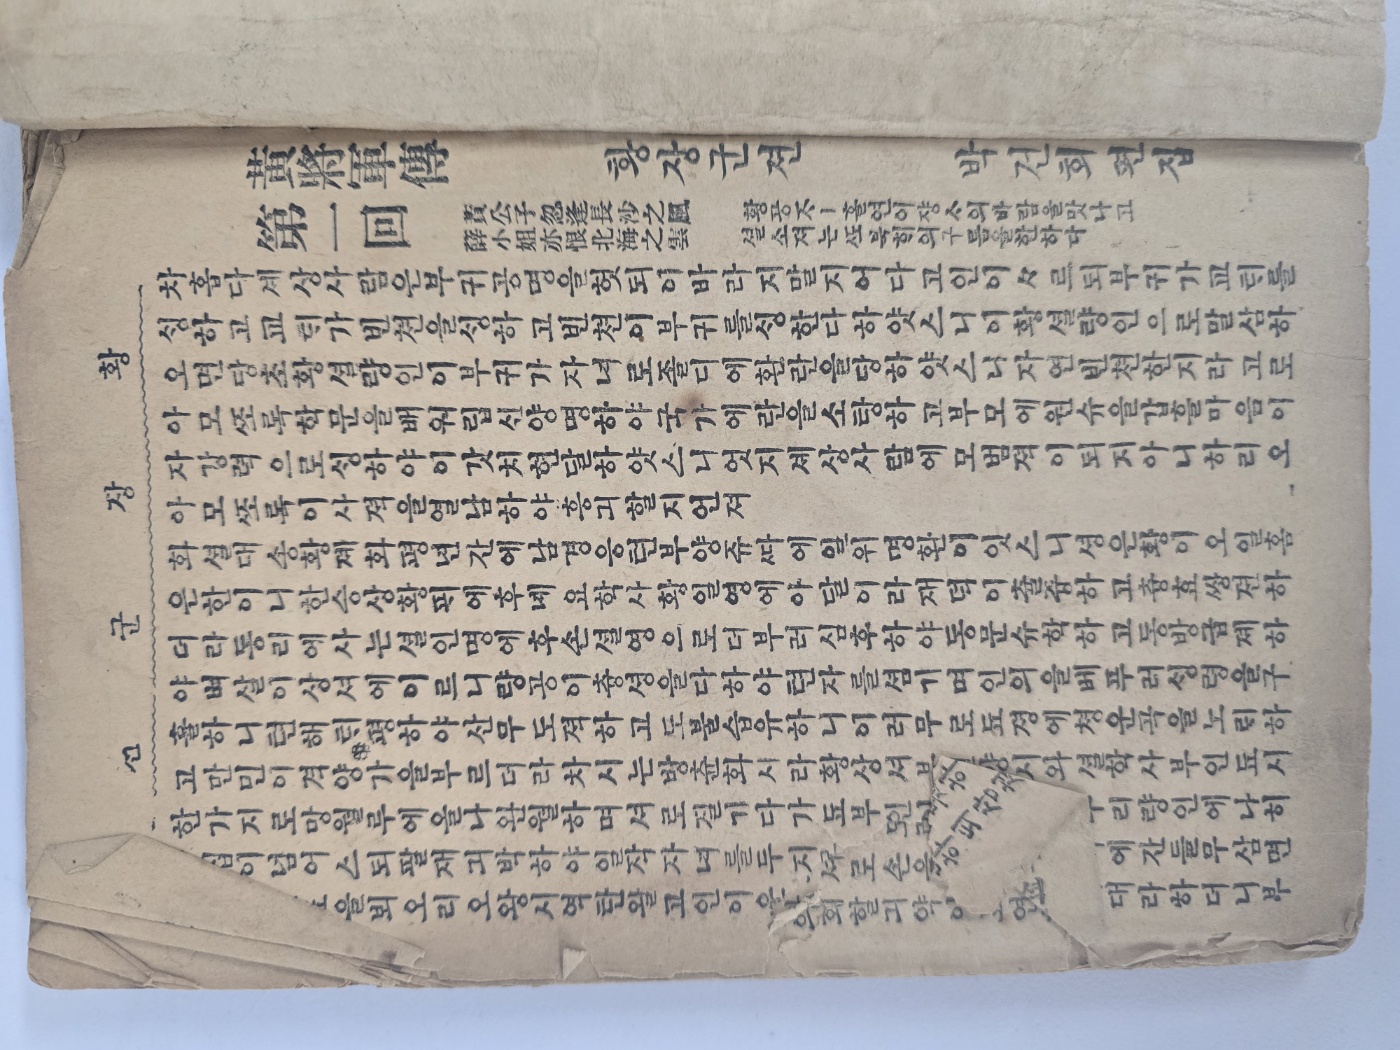 黃將軍傳 황쟝군젼 박건회 편집
第一回
黃公子忽逢長沙之風 황공ᄌᆞㅣ홀연이쟝ᄉᆞ의바람을맛나고
薛小姐亦恨北海之雲 셜소져는ᄯᅩ북해의구름을한하다
차홉다세상사람은부귀공명을헛되이바라지말지어다고인이々르되부귀가교틱를
싱하고교틱가빈쳔을싱하고빈쳔이부귀를싱한다하얏스니이황셜량인으로말삼하
오면당초황셜량인이부귀가자녀로졸디에환란을당하얏스나자연빈쳔한지라고로
아모ᄶᅩ록학문을배워립신양명하야국가에란을소탕하고부모에원슈을갑흘마음이
자강력으로싱하야이갓치현달하얏스니엇지셰상사람에모범젹이되지아니하리오
아모ᄶᅩ록이사젹을열남하야흥긔할지언져
화셜대송황뎨화평년간에남경응텬부양쥬ᄯᅡ에일위명환이잇스니셩은황이오일홈
은한이니한승상황픽에후녜요학사황일영에아달이라재덕이츌즁하고츙효쌍젼하
더라동리에사는셜인명에후손셜영으로더부러심후하야동문슈학하고동방급졔하
야벼살이상셔에이르니량공이츙셩을다하야텬자를셤기며인의을배푸러싱령을구
휼하니텬해틱평하야산무도젹하고도불습유하니이러무로됴졍에쳥운곡을노릭하
고만민이격양가을부르더라차시는방츈화시라황상셔부 시와셜학사부인됴시
한가지로망월루에올나완월하며셔로질기다가됴부인 우리량인에나히
이넘어스되팔재긔박하야일작자녀를두지 로손을 에잔들무삼면
을뵈오리오왕시역탄왈고인이 의회할긔약이 대라하더니부
황 쟝 군 젼